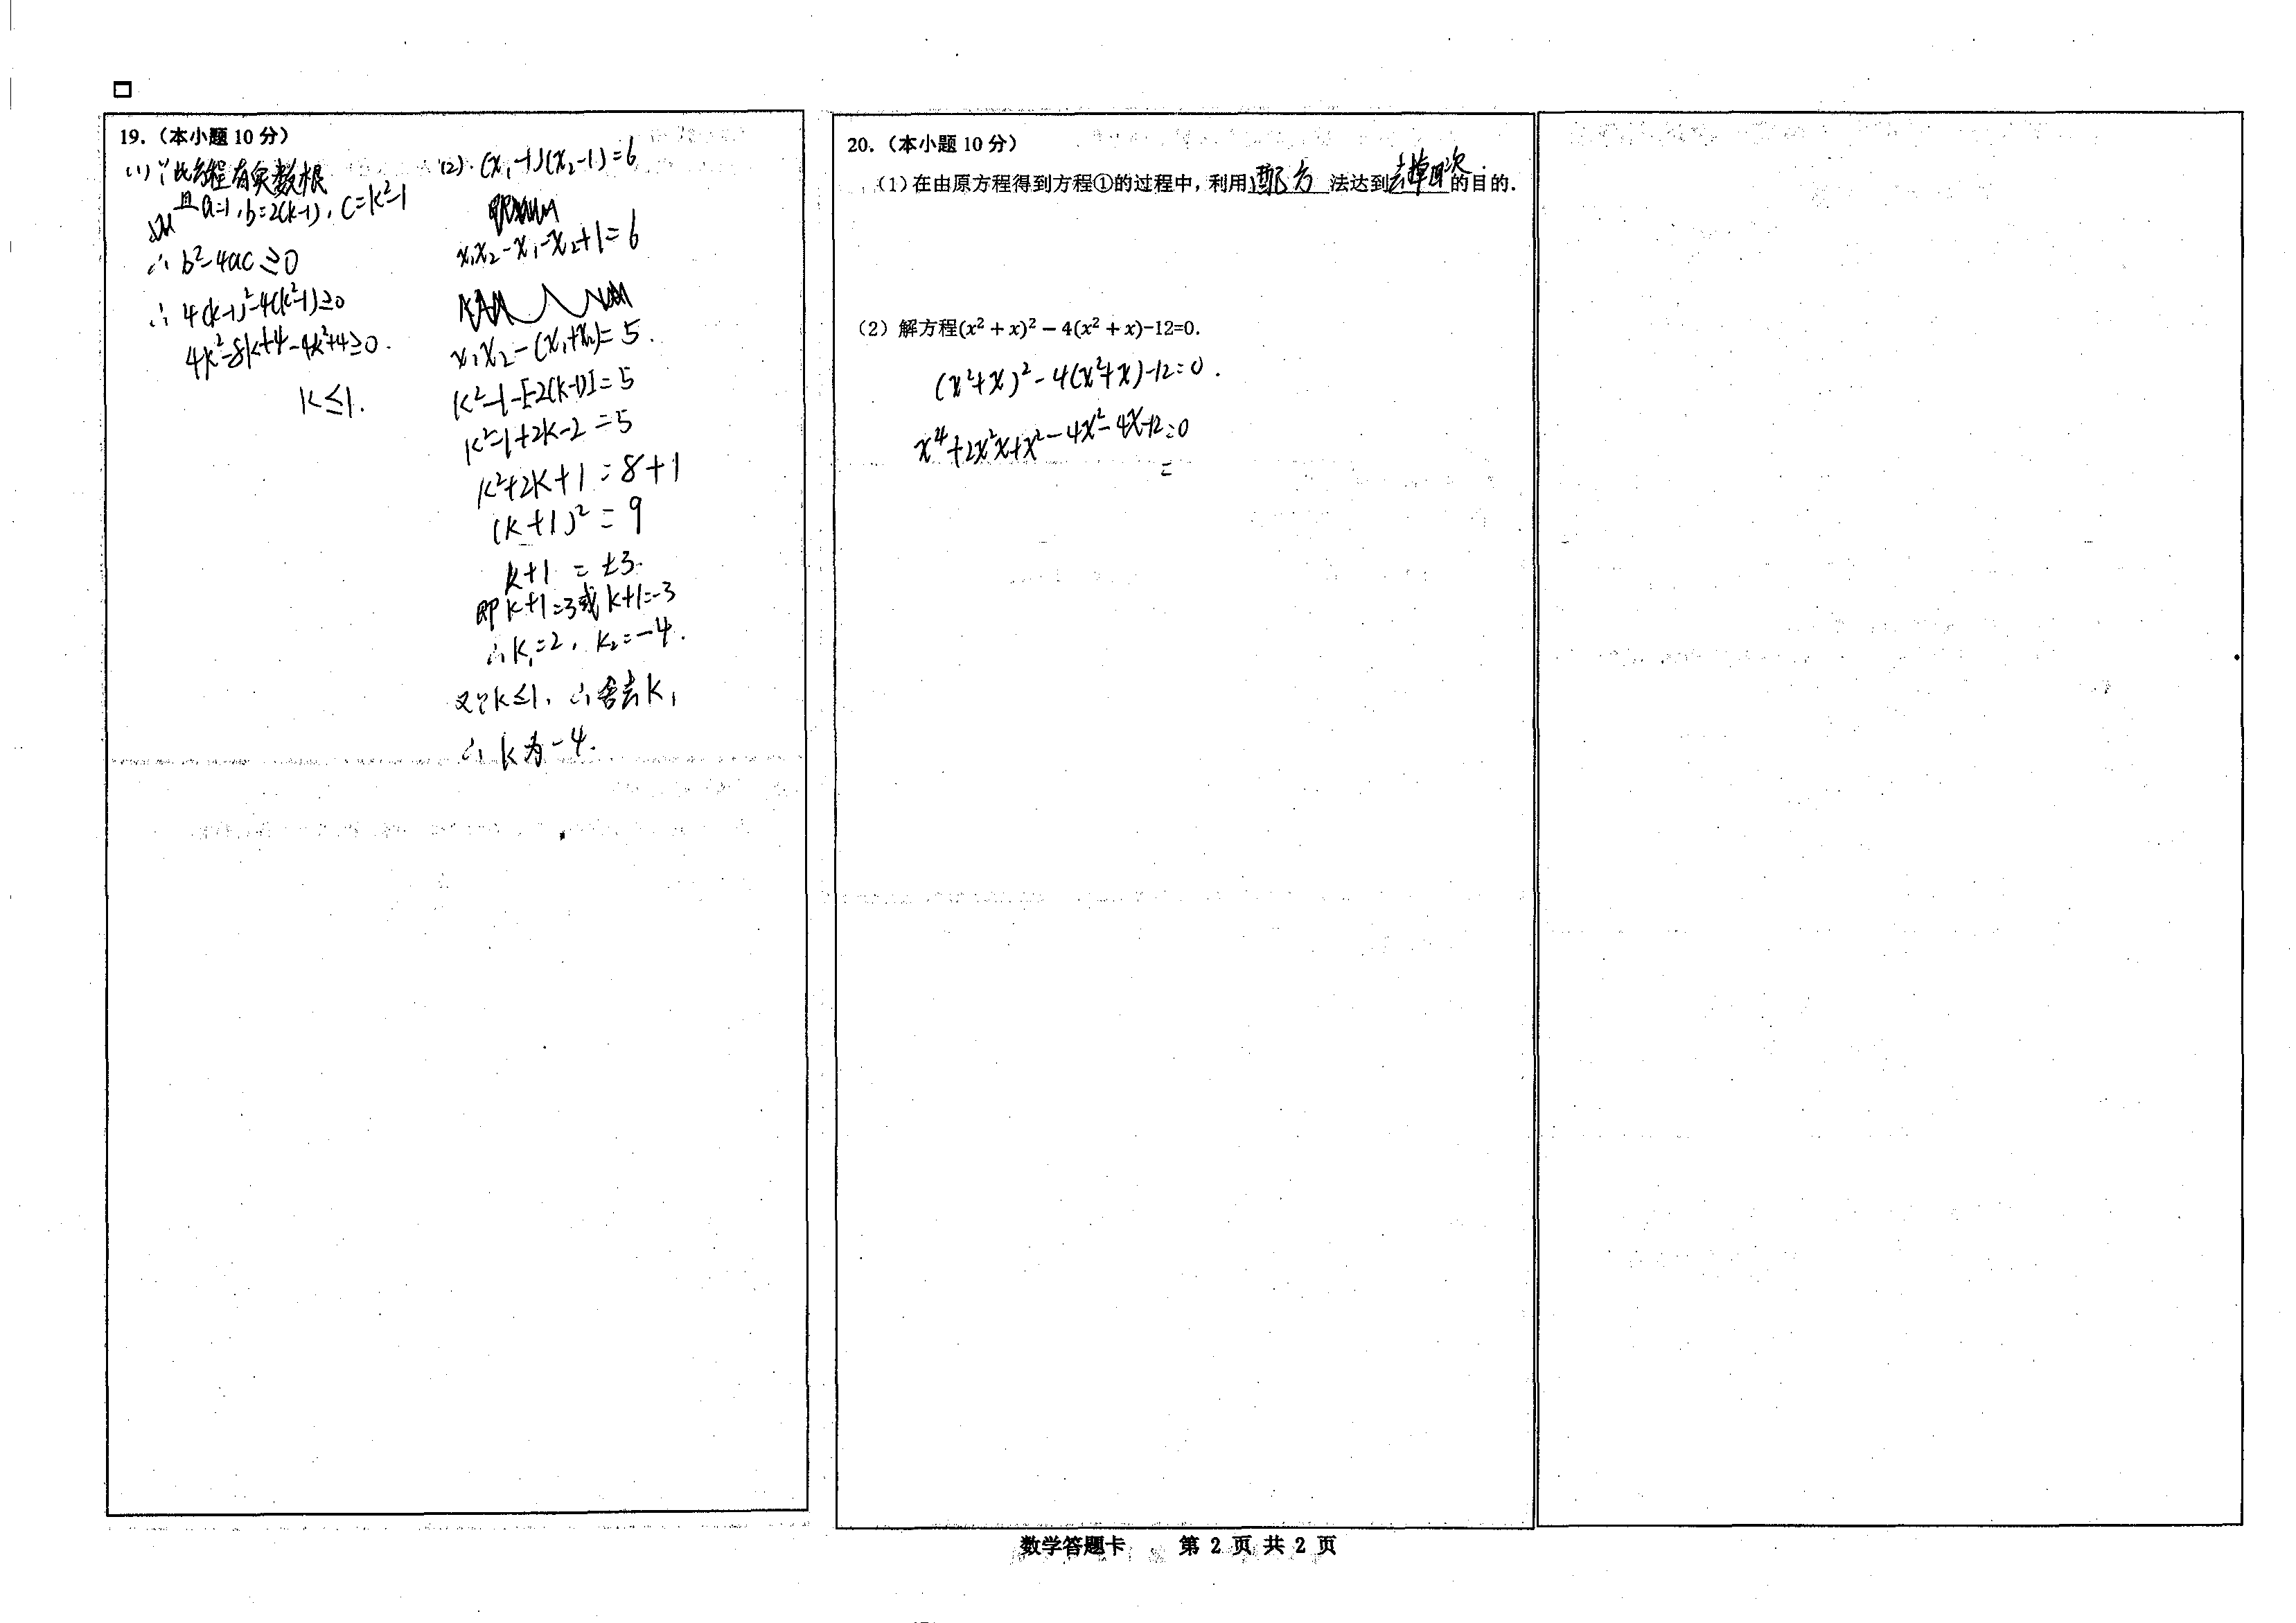 19.（本小题 10 分）
(1) ∵此方程有实数根
且a=1, b=2(k-1), c=k²-1
∴ b²-4ac≥0
∴ 4(k-1)²-4(k²-1)≥0
4k²-8k+4-4k²+4≥0.
k≤1.
(2). (x₁-1)(x₂-1)=6
x₁x₂-x₁-x₂+1=6
x₁x₂-(x₁+x₂)=5.
k²-1-[-2(k-1)]=5
k²-1+2k-2=5
k²+2k+1=8+1
(k+1)²=9
k+1=±3.
即k+1=3或k+1=-3
∴k₁=2, k₂=-4.
又∵k≤1, ∴舍去k₁
∴k为-4.
20.（本小题 10 分）
（1）在由原方程得到方程①的过程中，利用 配方 法达到 去掉四次 的目的.
（2）解方程(x² + x)² − 4(x² + x)−12=0.
(x²+x)²-4(x²+x)-12=0.
x⁴+2x²x+x²-4x²-4x-12=0
=
数学答题卡 第 2 页 共 2 页